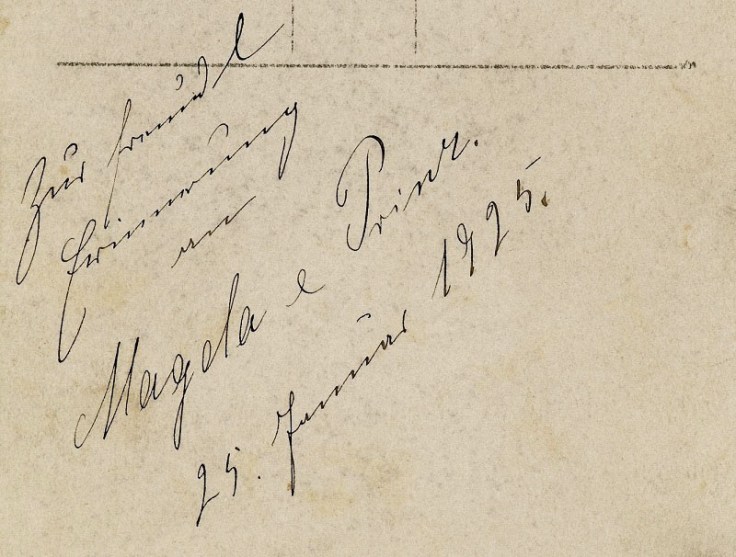 Zur freudl
Erinnerung
an
Magda e Prinz.
25. Januar 1925.